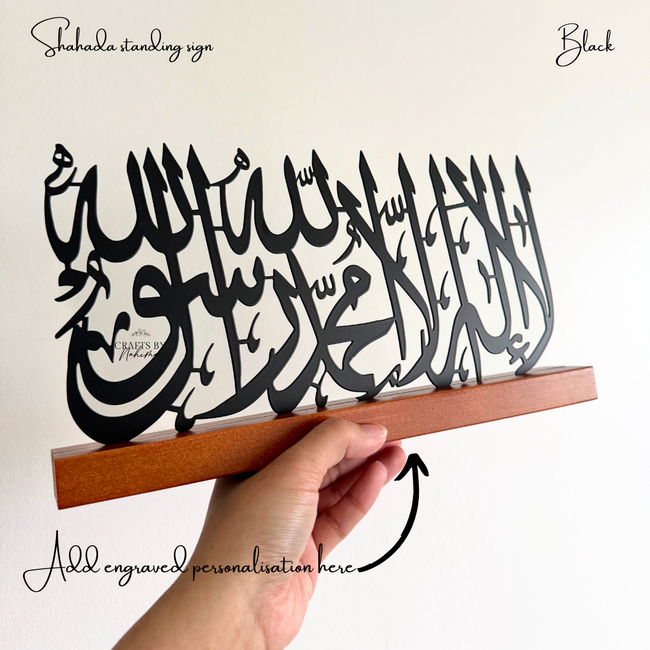 Shahada standing sign
Black
لا إله إلا الله محمد رسول الله
CRAFTS BY
Nahima
Add engraved personalisation here